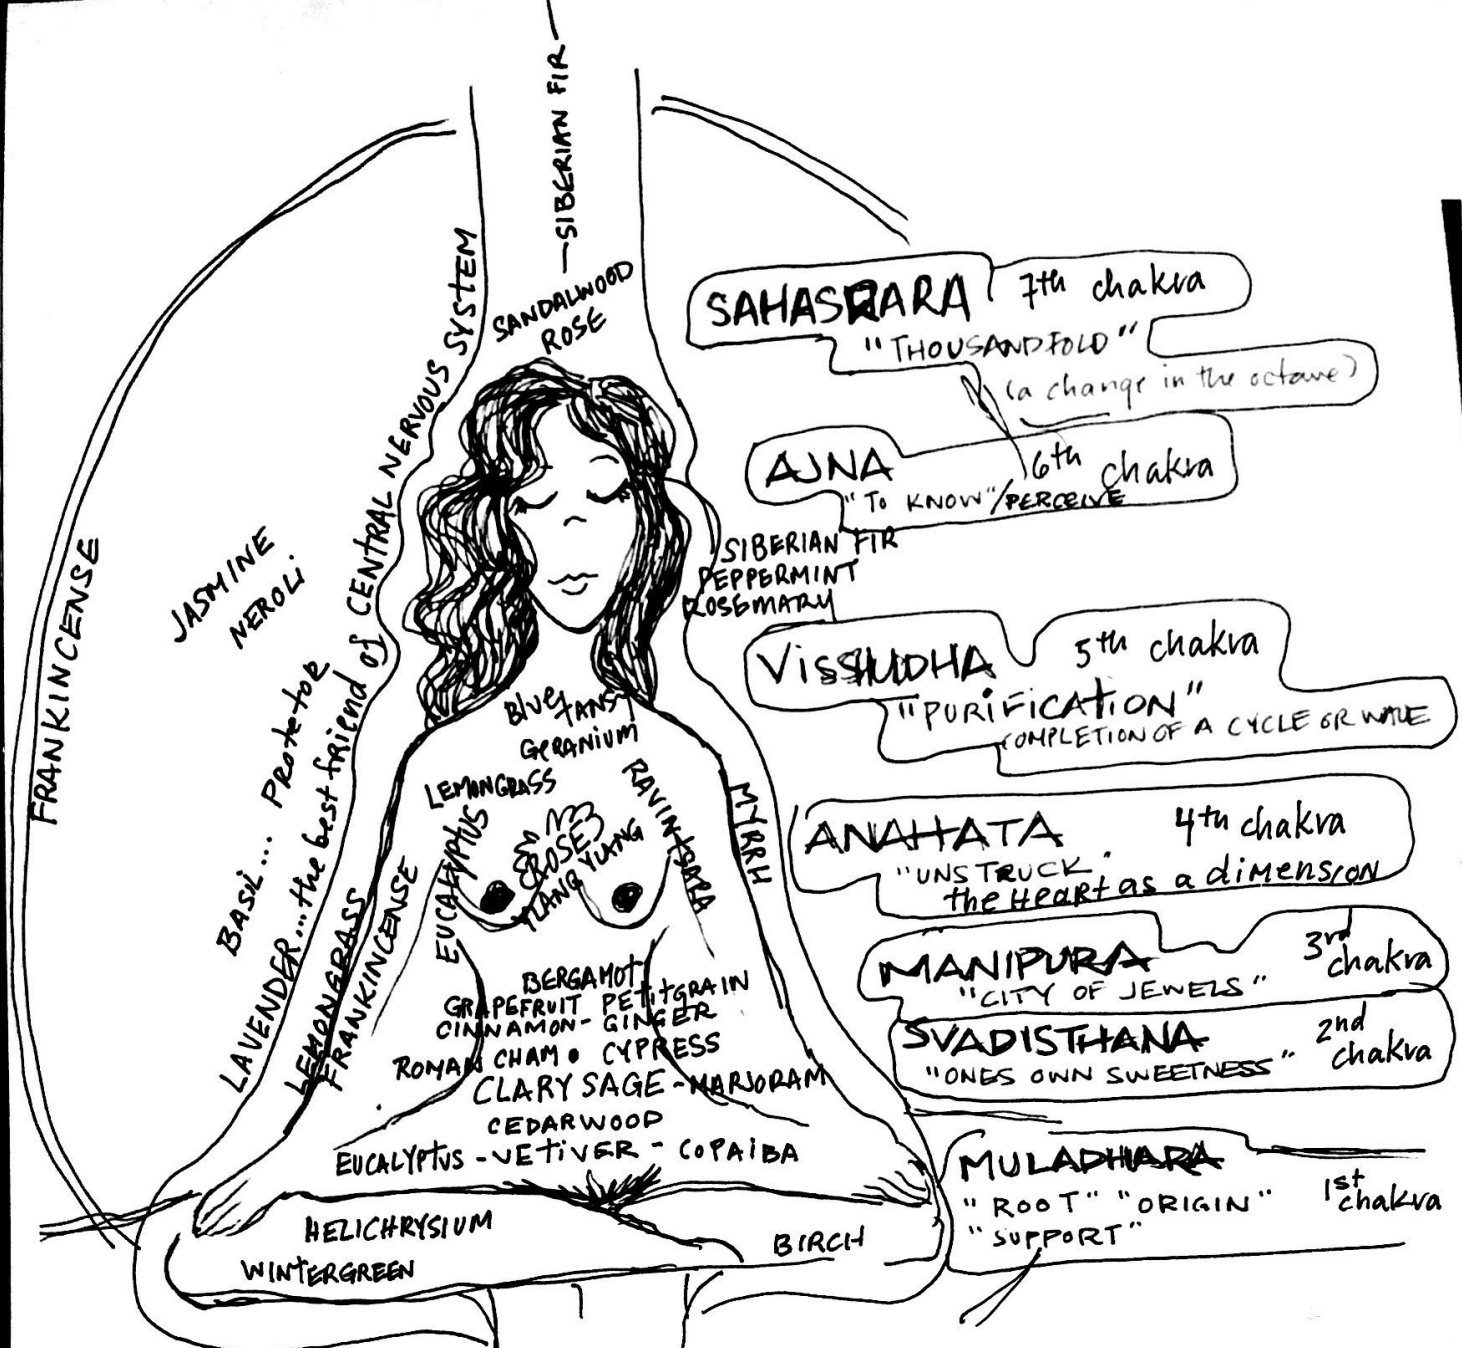 —SIBERIAN FIR—
SANDALWOOD
ROSE
FRANKINCENSE
JASMINE
NEROLI
BASIL... PROTETOR
LAVENDER...the best friend of CENTRAL NERVOUS SYSTEM
LEMONGRASS
FRANKINCENSE
SIBERIAN FIR
PEPPERMINT
ROSEMARY
MYRRH
BLUE TANSY
GERANIUM
LEMONGRASS
EUCALYPTUS
ROSE
YLANG YLANG
RAVINTSARA
BERGAMOT
GRAPEFRUIT PETITGRAIN
CINNAMON-GINGER
ROMAN CHAM • CYPRESS
CLARY SAGE-MARJORAM
CEDARWOOD
EUCALYPTUS-VETIVER-COPAIBA
HELICHRYSIUM
WINTERGREEN
BIRCH
SAHASRARA 7th chakra
"THOUSANDFOLD"
(a change in the octave)
AJNA 6th chakra
"TO KNOW"/PERCEIVE
VISSHUDHA 5th chakra
"PURIFICATION"
COMPLETION OF A CYCLE OR WAVE
ANAHATA 4th chakra
"UNSTRUCK"
the HEART as a dimension
MANIPURA 3rd chakra
"CITY OF JEWELS"
SVADISTHANA 2nd chakra
"ONES OWN SWEETNESS"
MULADHARA 1st chakra
"ROOT" "ORIGIN"
"SUPPORT"